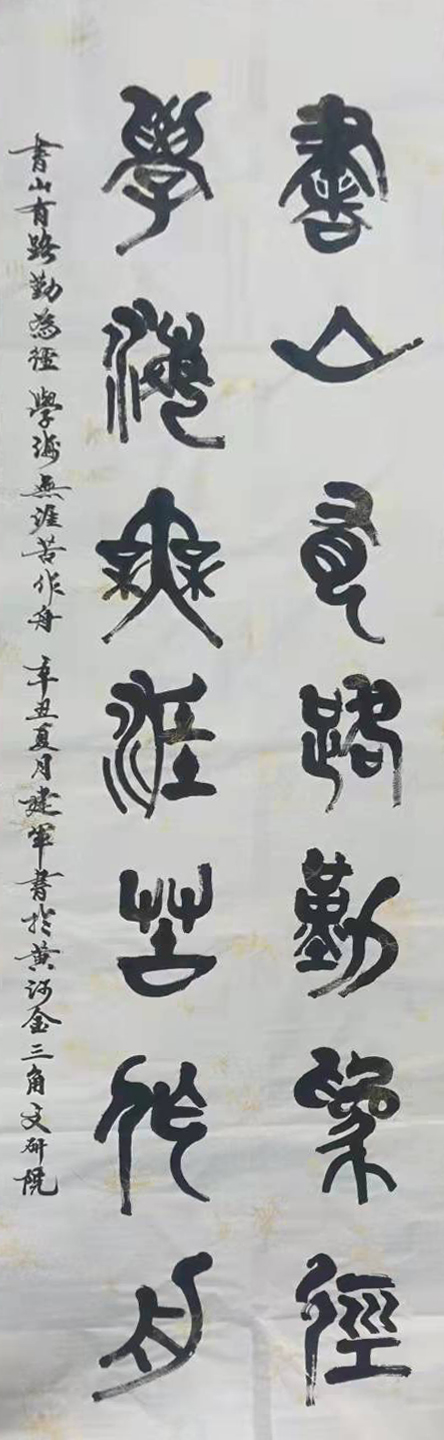 書山有路勤為徑
學海無涯苦作舟
書山有路勤為徑 學海無涯苦作舟 辛丑夏月建軍書於黃河金三角文研院